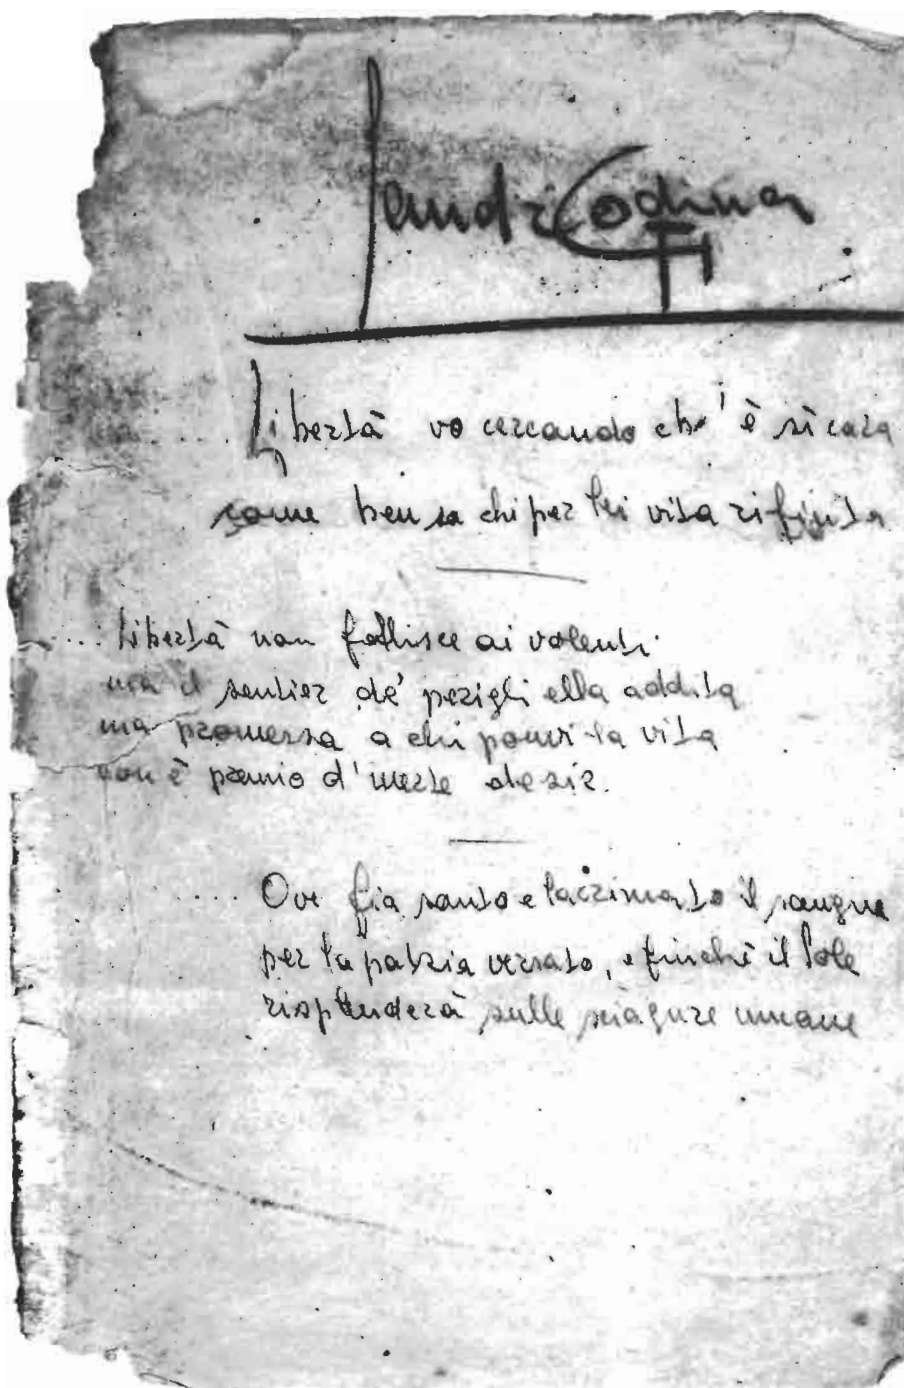 Landi Codina
Libertà vo cercando ch'è sì cara
come ben sa chi per lei vita rifiuta
.... Libertà non fallisce ai volenti
ma il sentier de' perigli ella addita
ma promessa a chi ponvi la vita
non è premio d'inerte desir.
.... Ove fia santo e lacrimato il sangue
per la patria versato, e finché il Sole
risplenderà sulle sciagure umane